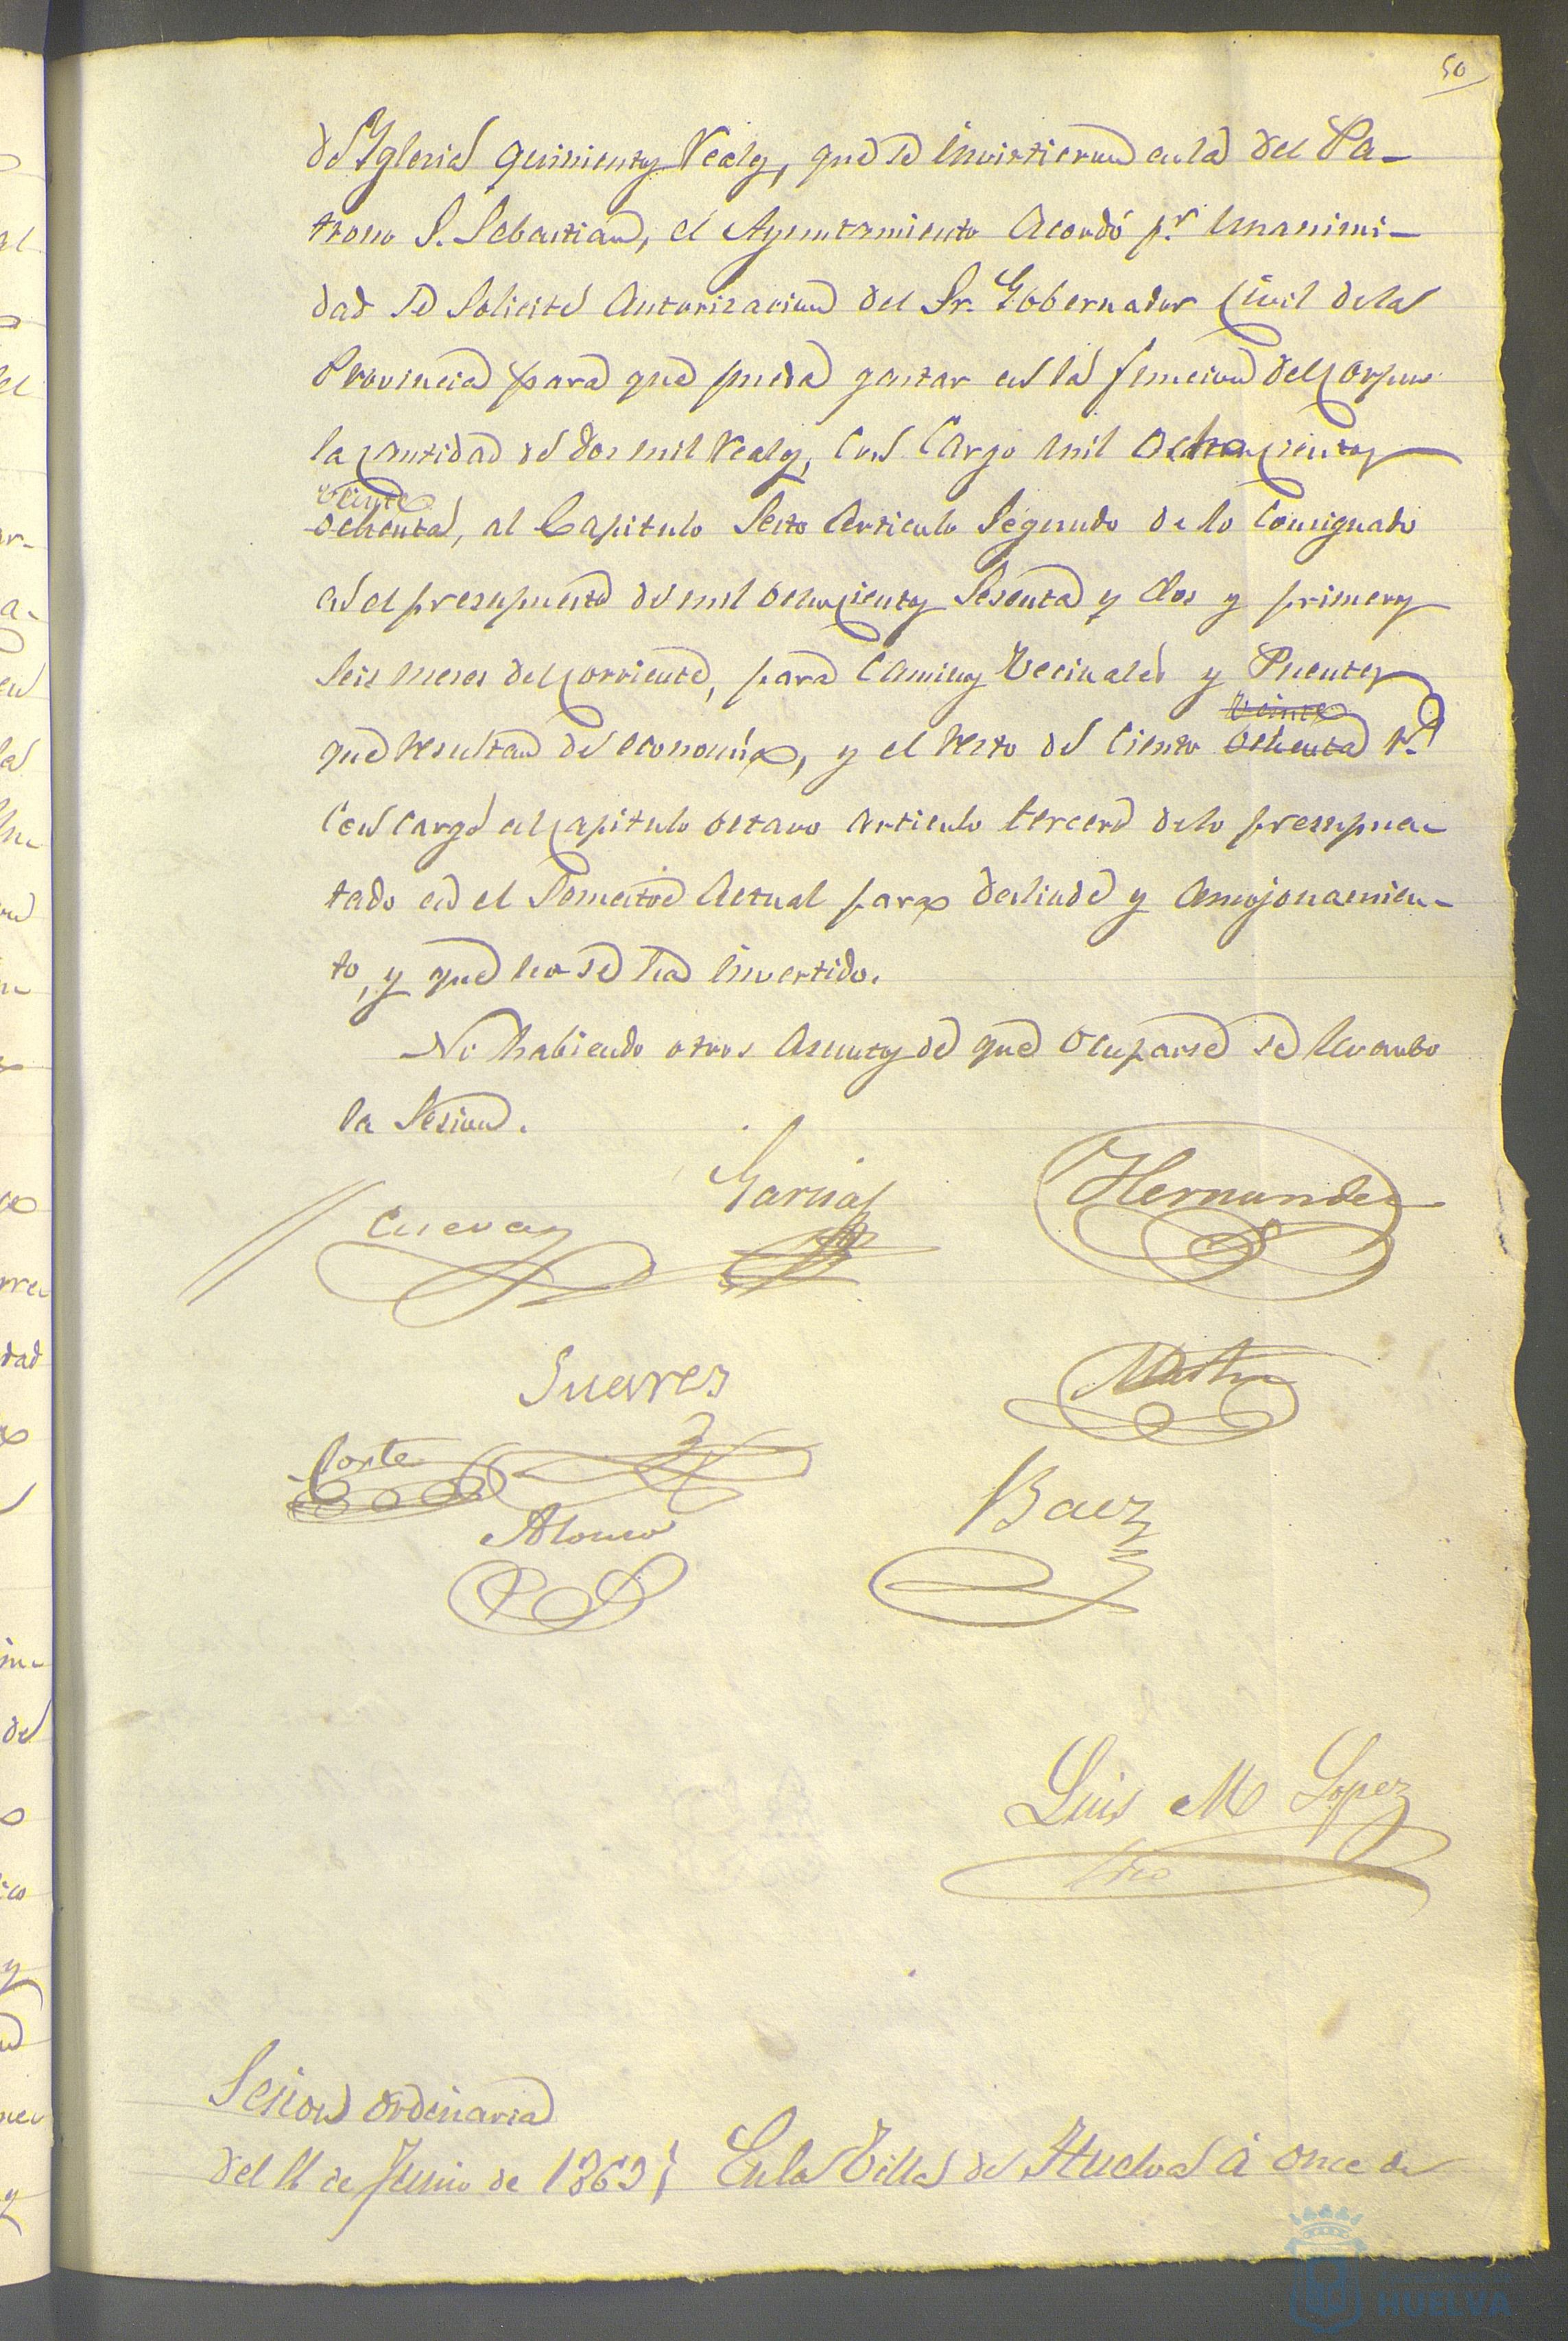 50
de Yglesia quinientos reales, que se invirtieron en la del Pa-
trono S. Sebastian, el Ayuntamiento acordó p.r unanimi-
dad se solicite autorizacion del Sr. Gobernador Civil de la
Provincia para que pueda gastar en la funcion del Corpus
la cantidad de dos mil reales, con cargo mil ochocientos
veinte
ochenta, al Capitulo Sesto Articulo Segundo de lo consignado
en el presupuesto de mil ochocientos sesenta y dos y primeros
seis meses del corriente, para Caminos Vecinales y Puentes
veinte
que resultan de economia, y el resto de ciento ochenta r.s
con cargo al Capitulo octavo articulo tercero de lo presupues-
tado en el Semestre actual para deslinde y amojonamien-
to, y que no se ha invertido.
No habiendo otros asuntos de que ocuparse se levanto
la Sesion.
Cuevas
Garcia
Hernandez
Suarez
Corte
Alonso
Baez
Luis M Lopez
Srio
Sesion ordinaria
del 11 de Junio de 1863
En la Villa de Huelva á once de
HUELVA